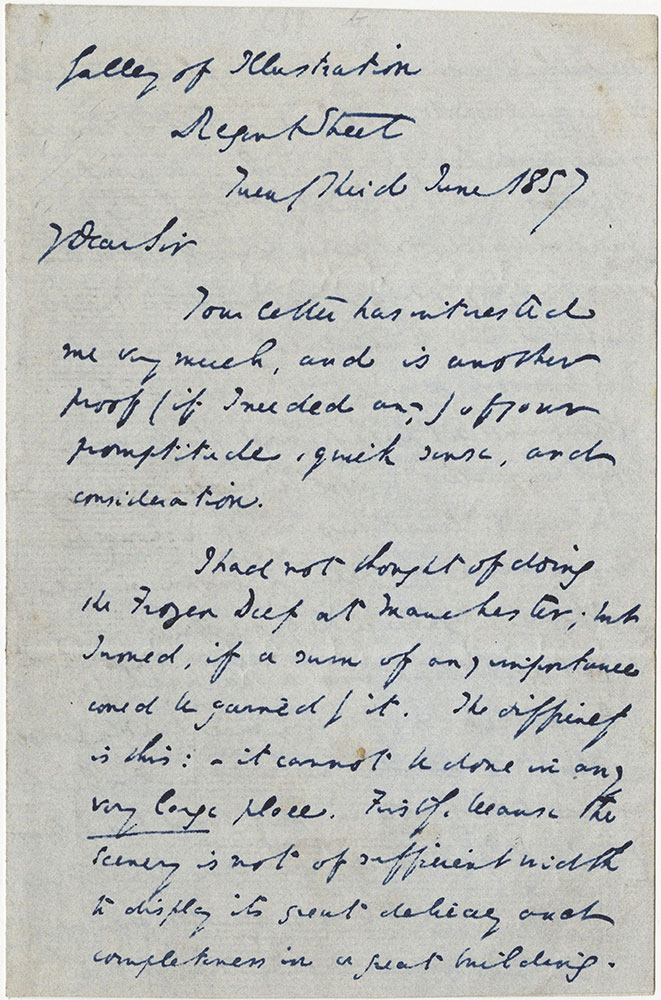 Gallery of Illustration
Regent Street
Twenty Third June 1857
Dear Sir
Your letter has interested
me very much, and is another
proof (if I needed any) of your
promptitude, quick sense, and
consideration.
I had not thought of doing
the Frozen Deep at Manchester; but
I would, if a sum of any importance
could be gained by it. The difficulty
is this: - it cannot be done in any
very large place. Firstly, because the
scenery is not of sufficient width
to display its great delicacy and
completeness in a great building.